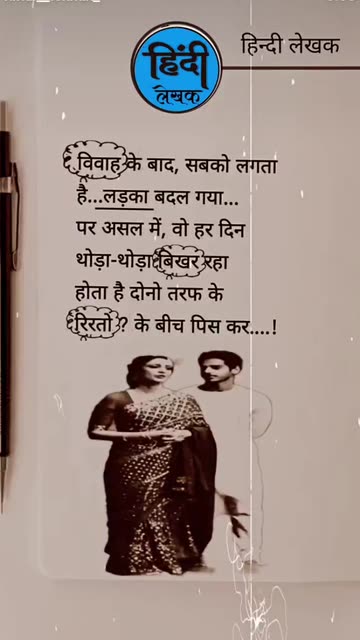 हिंदी
लेखक
हिन्दी लेखक
विवाह के बाद, सबको लगता
है...लड़का बदल गया...
पर असल में, वो हर दिन
थोड़ा-थोड़ा बिखर रहा
होता है दोनो तरफ के
रिश्तो ? के बीच पिस कर....!